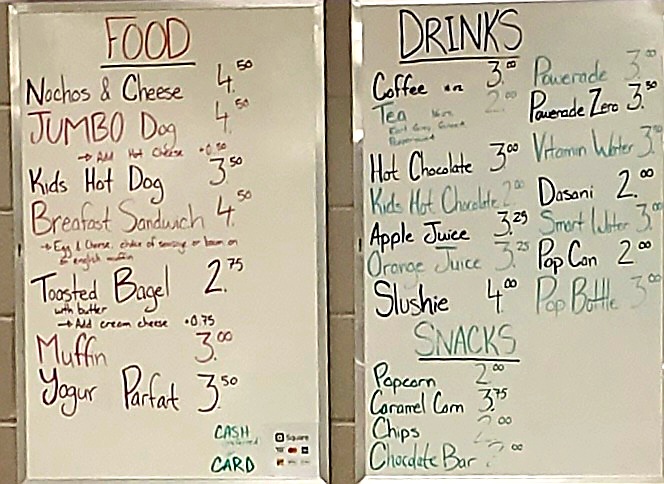 FOOD
Nachos & Cheese 4.50
JUMBO Dog 4.50
→ Add Hot Cheese +0.50
Kids Hot Dog 3.50
Breafast Sandwich 4.50
→ Egg & Cheese, choice of sausage or bacon on
english muffin
Toasted Bagel 2.75
with butter
→ Add cream cheese +0.75
Muffin 3.00
Yogur Parfat 3.50
CASH
CARD
Square
DRINKS
Coffee 3.00
Tea 2.00
Earl Grey,
Peppermint
Hot Chocolate 3.00
Kids Hot Chocolate 2.00
Apple Juice 3.25
Orange Juice 3.25
Slushie 4.00
Powerade 3.00
Powerade Zero 3.50
Vitamin Water 3.50
Dasani 2.00
Smart Water 3.00
Pop Can 2.00
Pop Bottle 3.00
SNACKS
Popcorn 2.00
Caramel Corn 3.75
Chips 2.00
Chocolate Bar